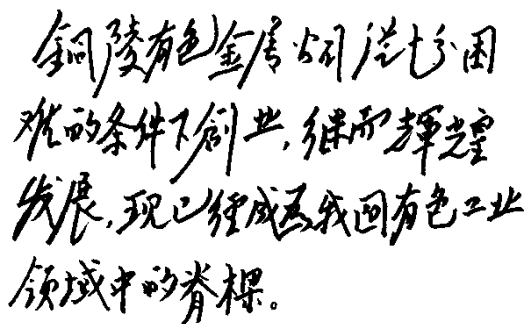 铜陵有色金属公司从十分困
难的条件下创业，继而辉煌
发展，现已经成为我国有色工业
领域中的脊樑。